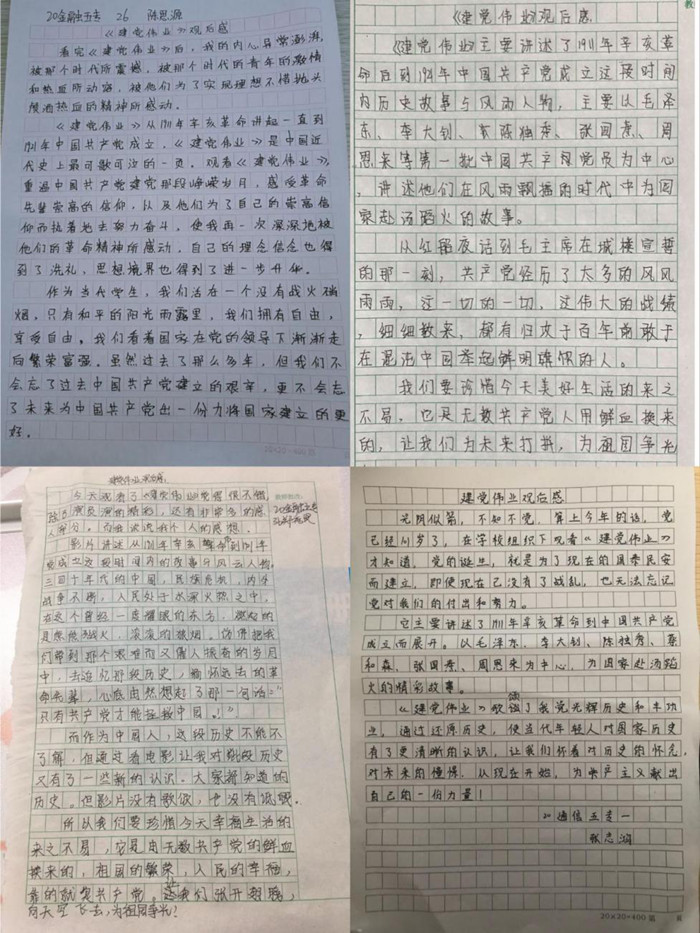 20金融五专 26 陈思源
《建党伟业》观后感
看完《建党伟业》后，我的内心异常澎湃，
被那个时代所震撼，被那个时代的青年的激情
和热血所动容，被他们为了实现理想不惜抛头
颅洒热血的精神所感动。
《建党伟业》从1911年辛亥革命讲起一直到
1921年中国共产党成立。《建党伟业》是中国近
代史上最可歌可泣的一页。观看《建党伟业》，
重温中国共产党建党那段峥嵘岁月，感受革命
先辈崇高的信仰，以及他们为了自己的崇高信
仰而执着地去努力奋斗，使我再一次深深地被
他们的革命精神所感动。自己的理念信念也得
到了洗礼，思想境界也得到了进一步升华。
作为当代学生，我们活在一个没有战火硝
烟，只有和平的阳光雨露里，我们拥有自由，
享受自由。我们看着国家在党的领导下渐渐走
向繁荣富强。虽然过去了那么多年，但我们不
会忘了过去中国共产党建立的艰辛，更不会忘
了未来为中国共产党出一份力将国家建立的更
好。
20×20=400
《建党伟业》观后感
《建党伟业》主要讲述了1911年辛亥革
命后到1921年中国共产党成立这段时间
内历史故事与风雨人物，主要以毛泽
东、李大钊、陈独秀、张国焘、周
恩来等第一批中国共产党党员为中心
，讲述他们在风雨飘摇的时代中为国
家赴汤蹈火的故事。
从红船夜话到毛主席在城楼宣誓
的那一刻，共产党经历了太多的风风
雨雨，这一切的一切，这伟大的战绩
，细细数来，都有归功于百年前敢于
在混沌中国举起鲜明旗帜的人。
我们要珍惜今天美好生活的来之
不易，它是无数共产党人用鲜血换来
的，让我们为未来打拼，为祖国争光
建党伟业观后感
今天观看了《建党伟业》觉得很不错，
演员演的精彩，还有非常多的感
人部分，而且谈谈我个人的感想。
影片讲述从1911年辛亥革命到1921年
党成立这段时间内的故事与风云人物。
二三四十年代的中国，民族危机，内外
战争不断，人民处于水深火热之中，
在这个曾经一度耀眼的东方，燃起的
是熊熊战火，滚滚的狼烟。仿佛把我
们带到那个艰难而又催人振奋的岁月
中，去追忆那段历史，缅怀远去的革
命先辈，心底由然想起了那一句话："
只有共产党才能拯救中国！"
而作为中国人，这段历史不能不
了解，但通过看电影让我对那段历史
又有了一些新的认识。大家都知道的
历史。但影片没有歌颂，也没有诋毁。
所以我们要珍惜今天幸福生活的
来之不易，它是由无数共产党的鲜血
换来的，祖国的繁荣，人民的幸福，
靠的就是共产党。让我们张开翅膀，
向天空飞去，为祖国争光！
建党伟业观后感
光阴似箭，不知不觉，算上今年的话，党
已经101岁了，在学校组织下观看《建党伟业》
才知道，党的诞生，就是为了现在的国泰民安
而建立，即使现在已没有了战乱，也无法忘记
党对我们的付出和努力。
它主要讲述了1911年辛亥革命到中国共产党
成立而展开。以毛泽东、李大钊、陈独秀、蔡
和森、张国焘、周恩来为中心，为国家赴汤蹈
火的精彩故事。
《建党伟业》歌颂了我党光辉历史和丰功
业，通过还原历史，使当代年轻人对国家历史
有了更清晰的认识，让我们怀着对历史的怀念，
对未来的憧憬，从现在开始，为共产主义献出
自己的一份力量！
21通信五专一
20×20=400